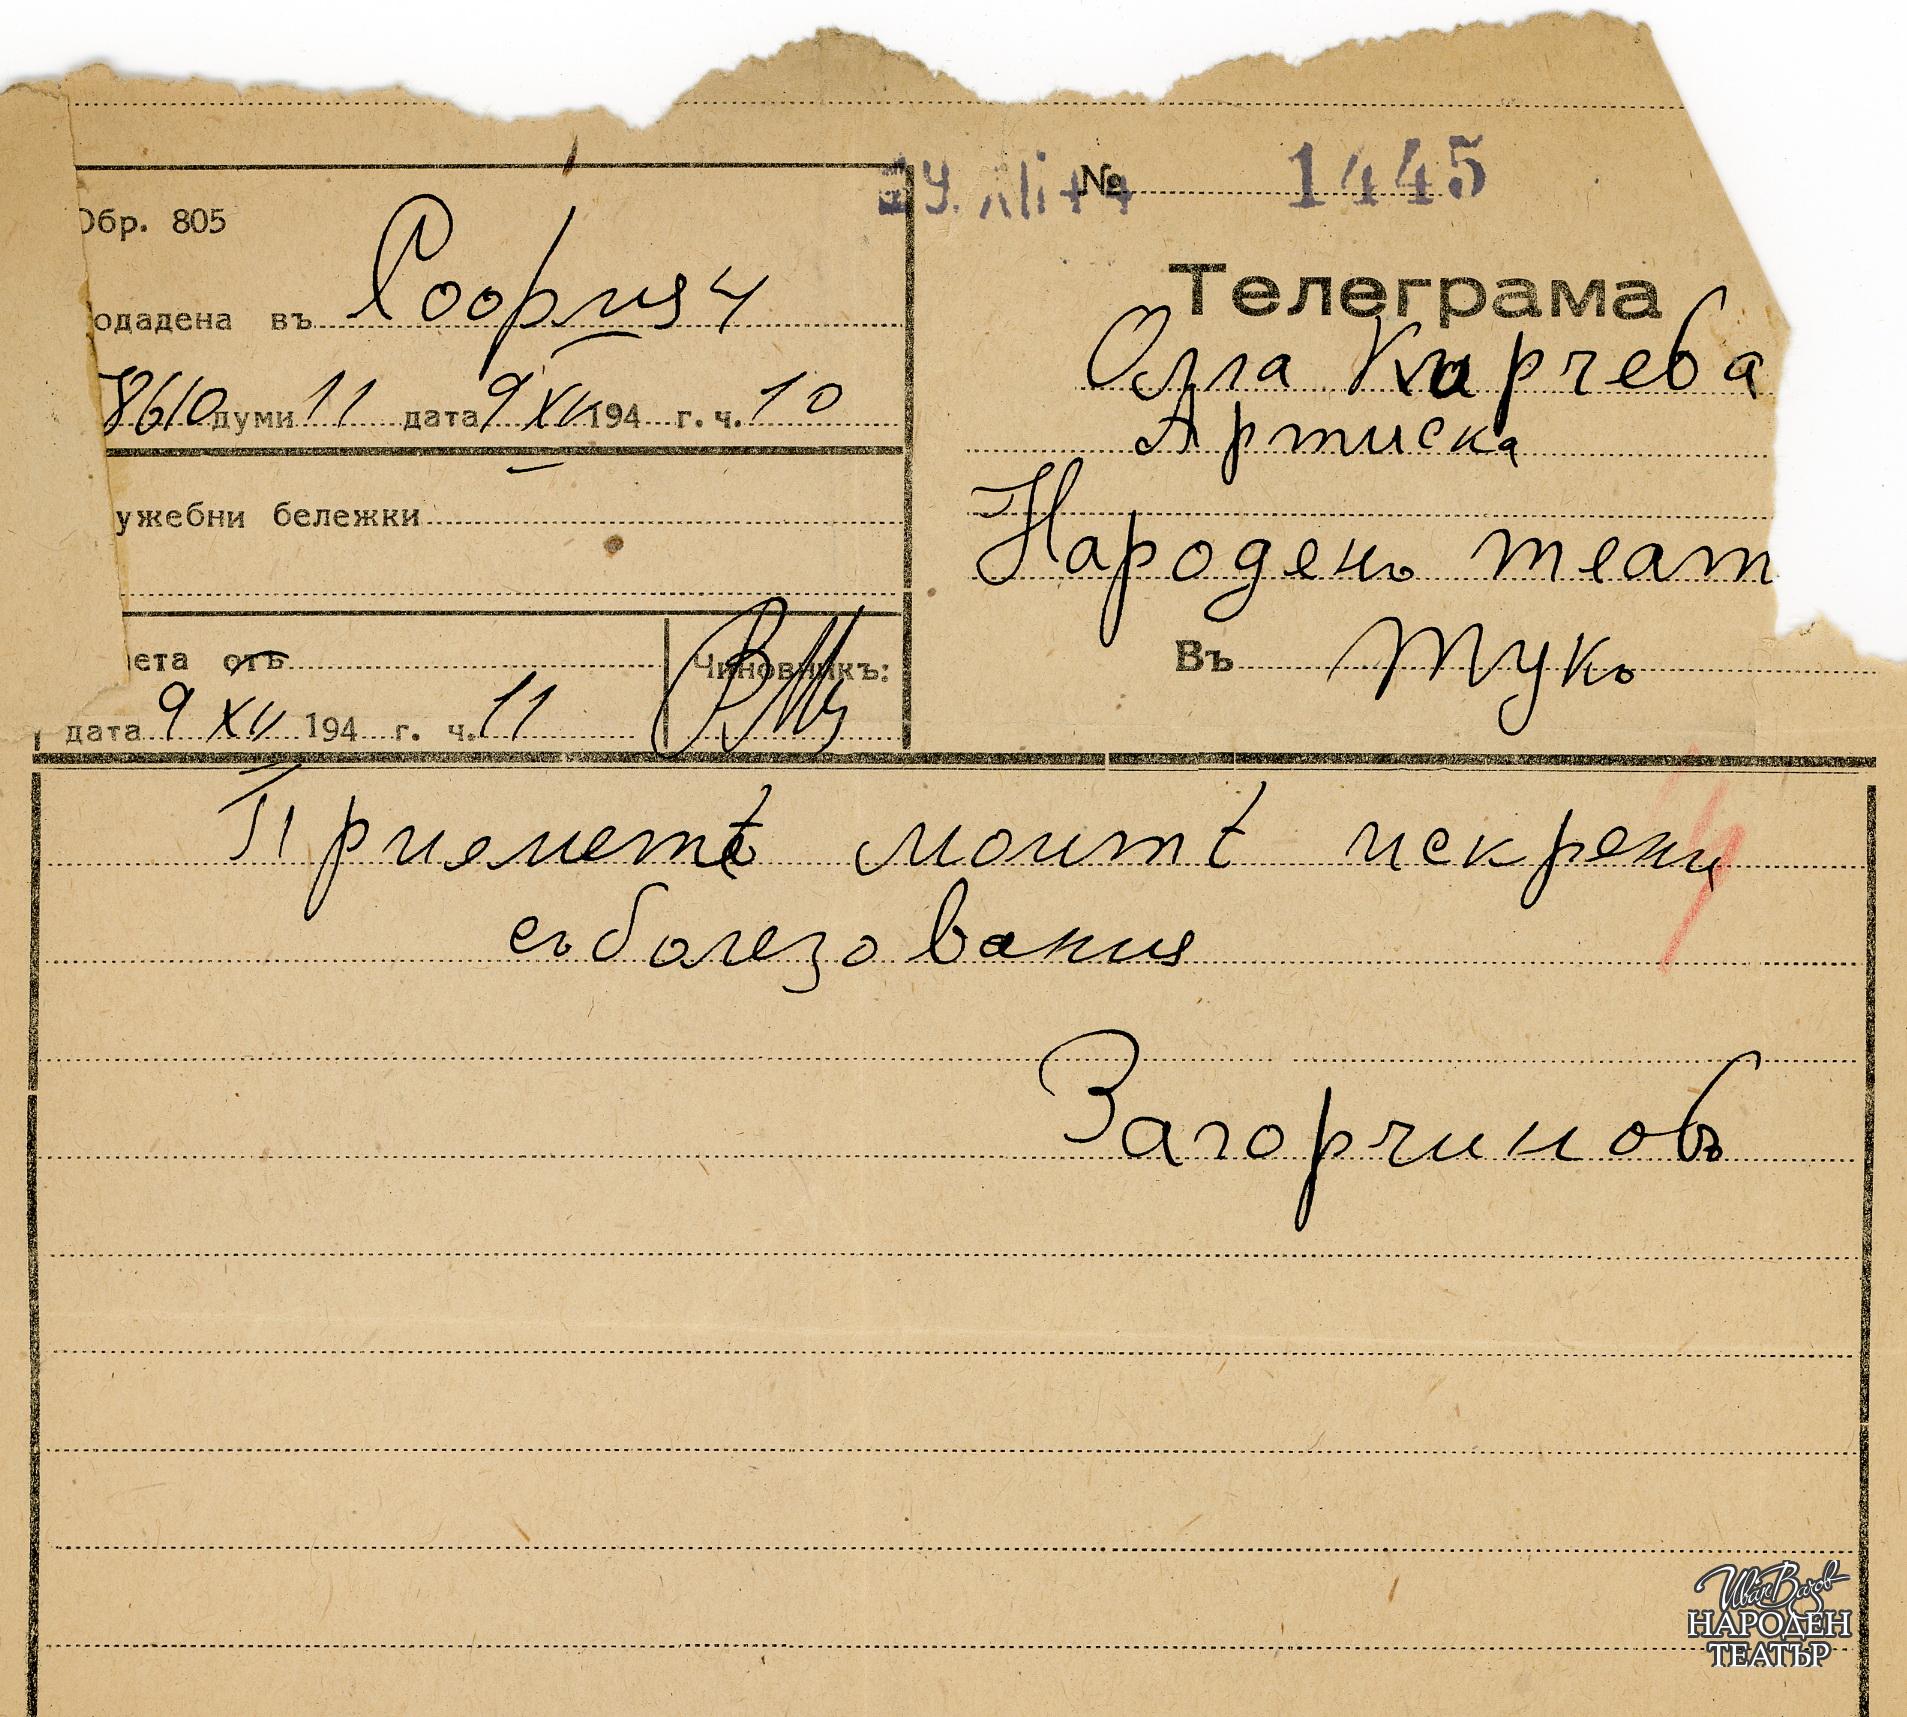 № 1445
Обр. 805
одадена въ София 4
8610 думи 11 дата 9 XII 194 г. ч. 10
ужебни бележки
ета отъ
Чиновникъ:
дата 9 XII 194 г. ч. 11
Телеграма
Олга Кирчева
Артиска
Народенъ теат
Въ тукъ
Приемете моитѣ искрени
съболезования
Загорчиновъ
Иван Вазов
НАРОДЕН
ТЕАТЪР